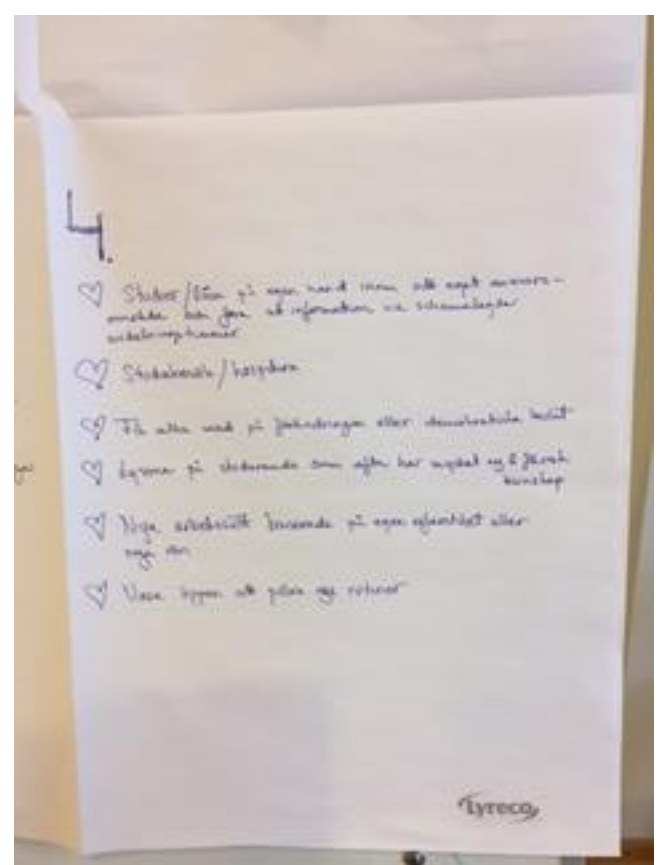 4.
Studier/läsa på egen hand inom sitt eget ansvars-
område information via schemalagda
Studiebesök/hospitera
Få alla med på förändringen eller demokratiska beslut
Lyssna på studerande som ofta har mycket ny & färsk
kunskap
Nya arbetssätt baserade på egen erfarenhet eller
nya rön
Vara öppen att pröva nya rutiner
Lyreco